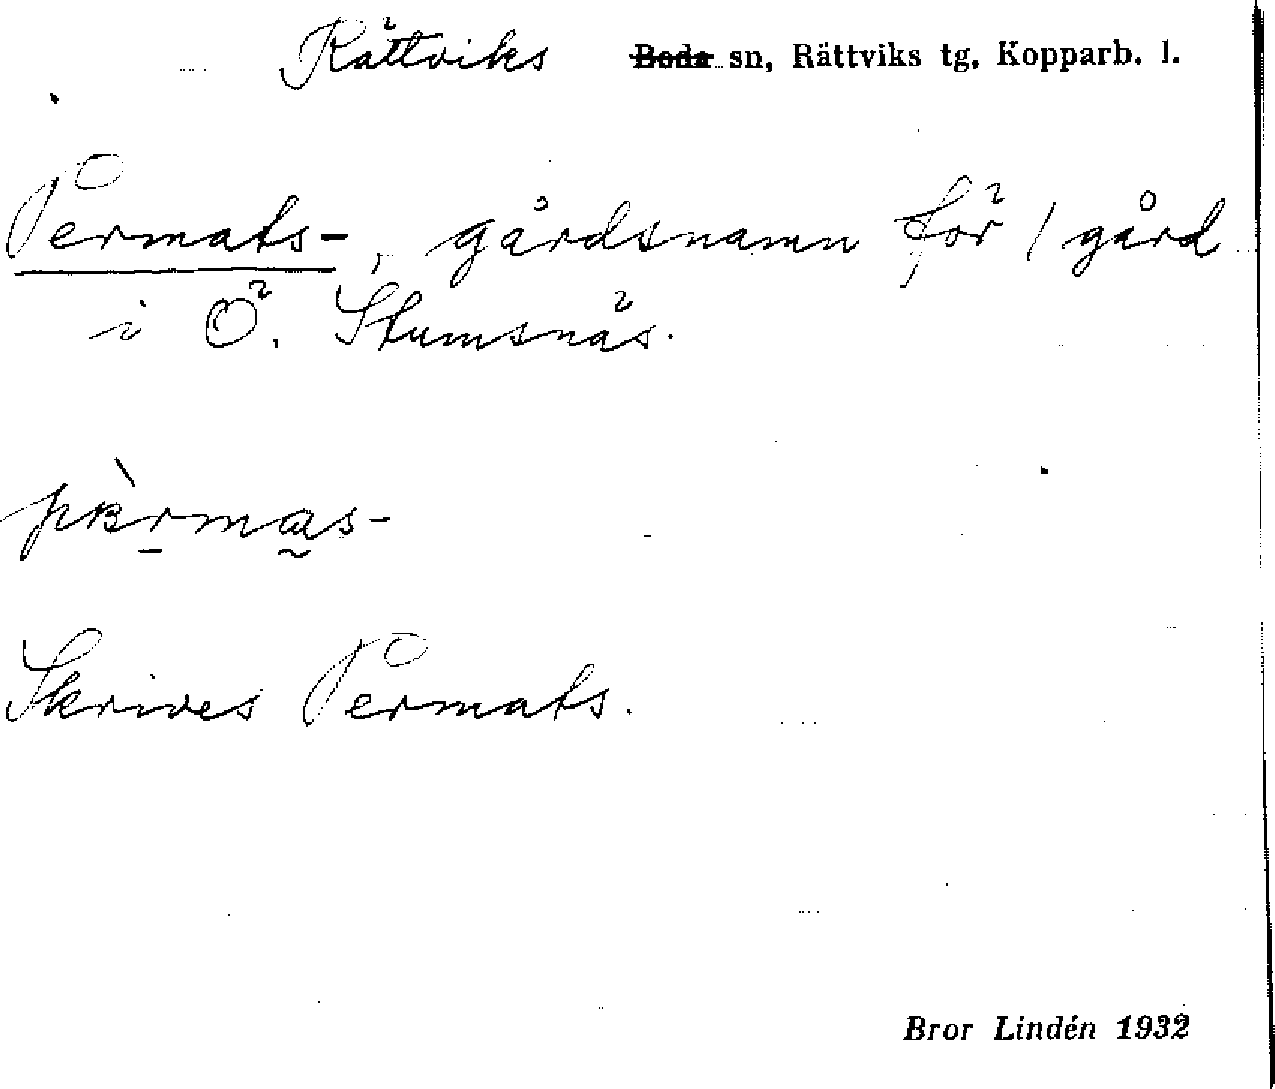 Rättviks ~~Boda~~ sn, Rättviks tg, Kopparb. l.
Permats-, gårdsnamn för 1 gård
i Ö. Stumsnäs.
pɛ̀rmas-
Skrives Permats.
Bror Lindén 1932